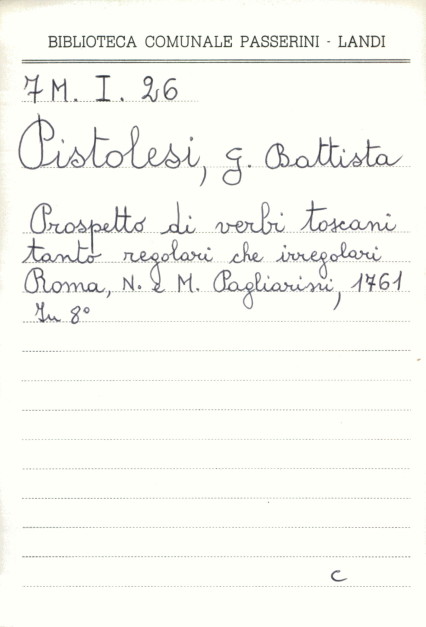 BIBLIOTECA COMUNALE PASSERINI - LANDI
7 M. I. 26
Pistolesi, G. Battista
Prospetto di verbi toscani
tanto regolari che irregolari
Roma, N. e M. Pagliarini, 1761
In 8°
C